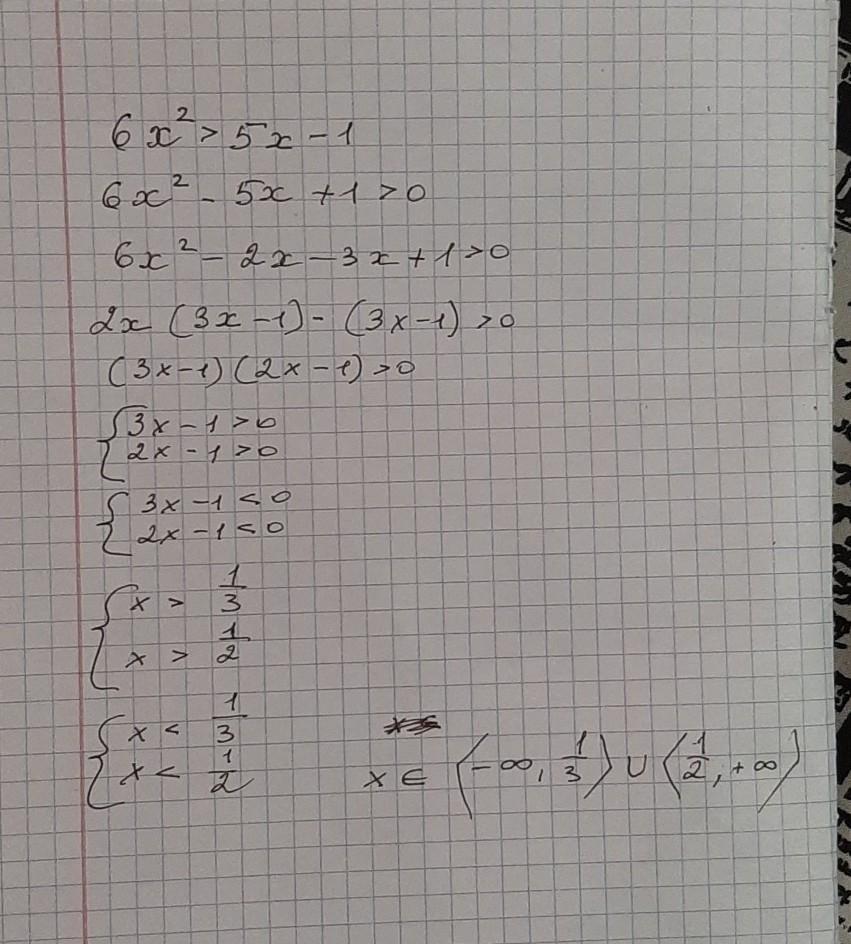 6x² > 5x - 1
6x² - 5x + 1 > 0
6x² - 2x - 3x + 1 > 0
2x (3x - 1) - (3x - 1) > 0
(3x - 1) (2x - 1) > 0
{ 3x - 1 > 0
2x - 1 > 0
{ 3x - 1 < 0
2x - 1 < 0
{ x > 1/3
x > 1/2
{ x < 1/3
x < 1/2
x ∈ (-∞, 1/3) ∪ (1/2, +∞)